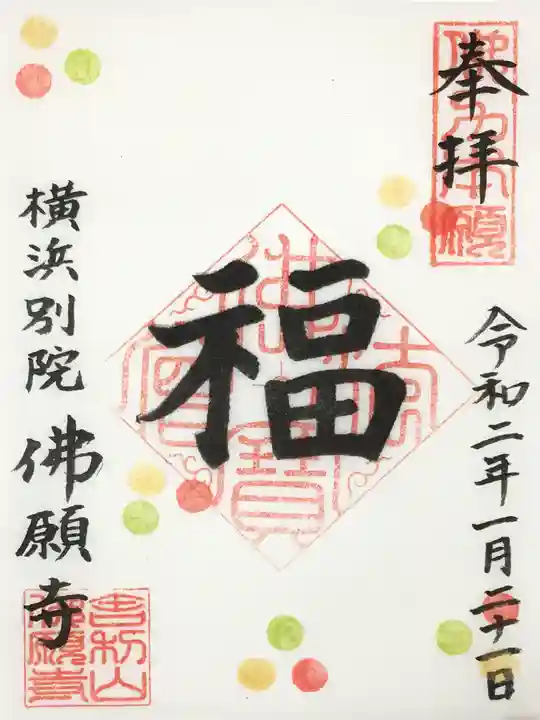 奉拝
令和二年一月二十一日
福
横浜別院 佛願寺
佛法僧寶